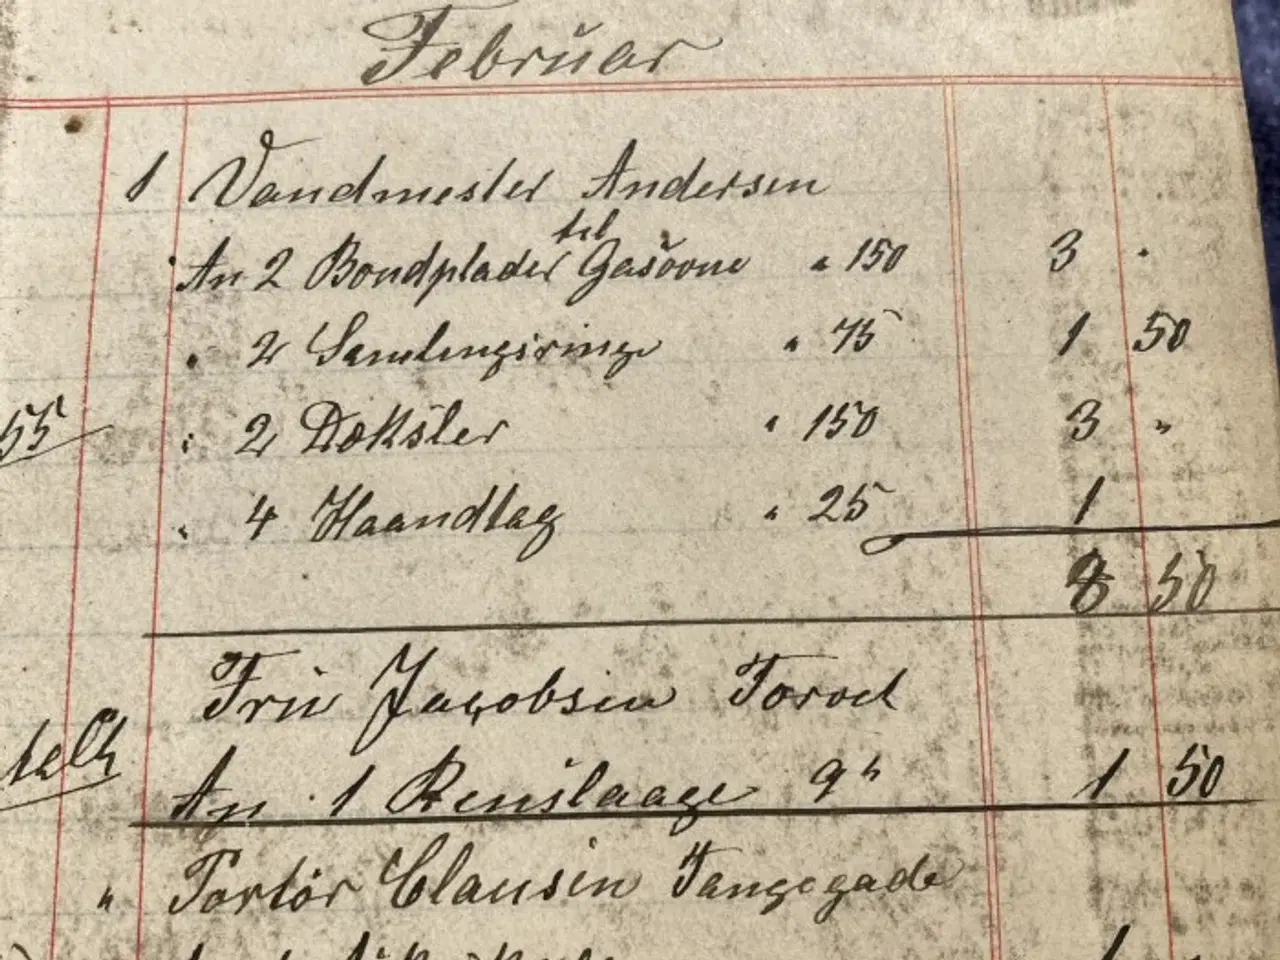 Februar
1 Vandmester Andersen
An 2 Bondplader til Gasovne " 150 3 "
" 2 Samlingsringe " 75 1 50
55 " 2 Dæksler " 150 3 "
" 4 Haandtag " 25 1
8 50
Fru Jacobsen Torvet
An 1 Renslaage 9" 1 50
" Portør Clausen Tangegade
1